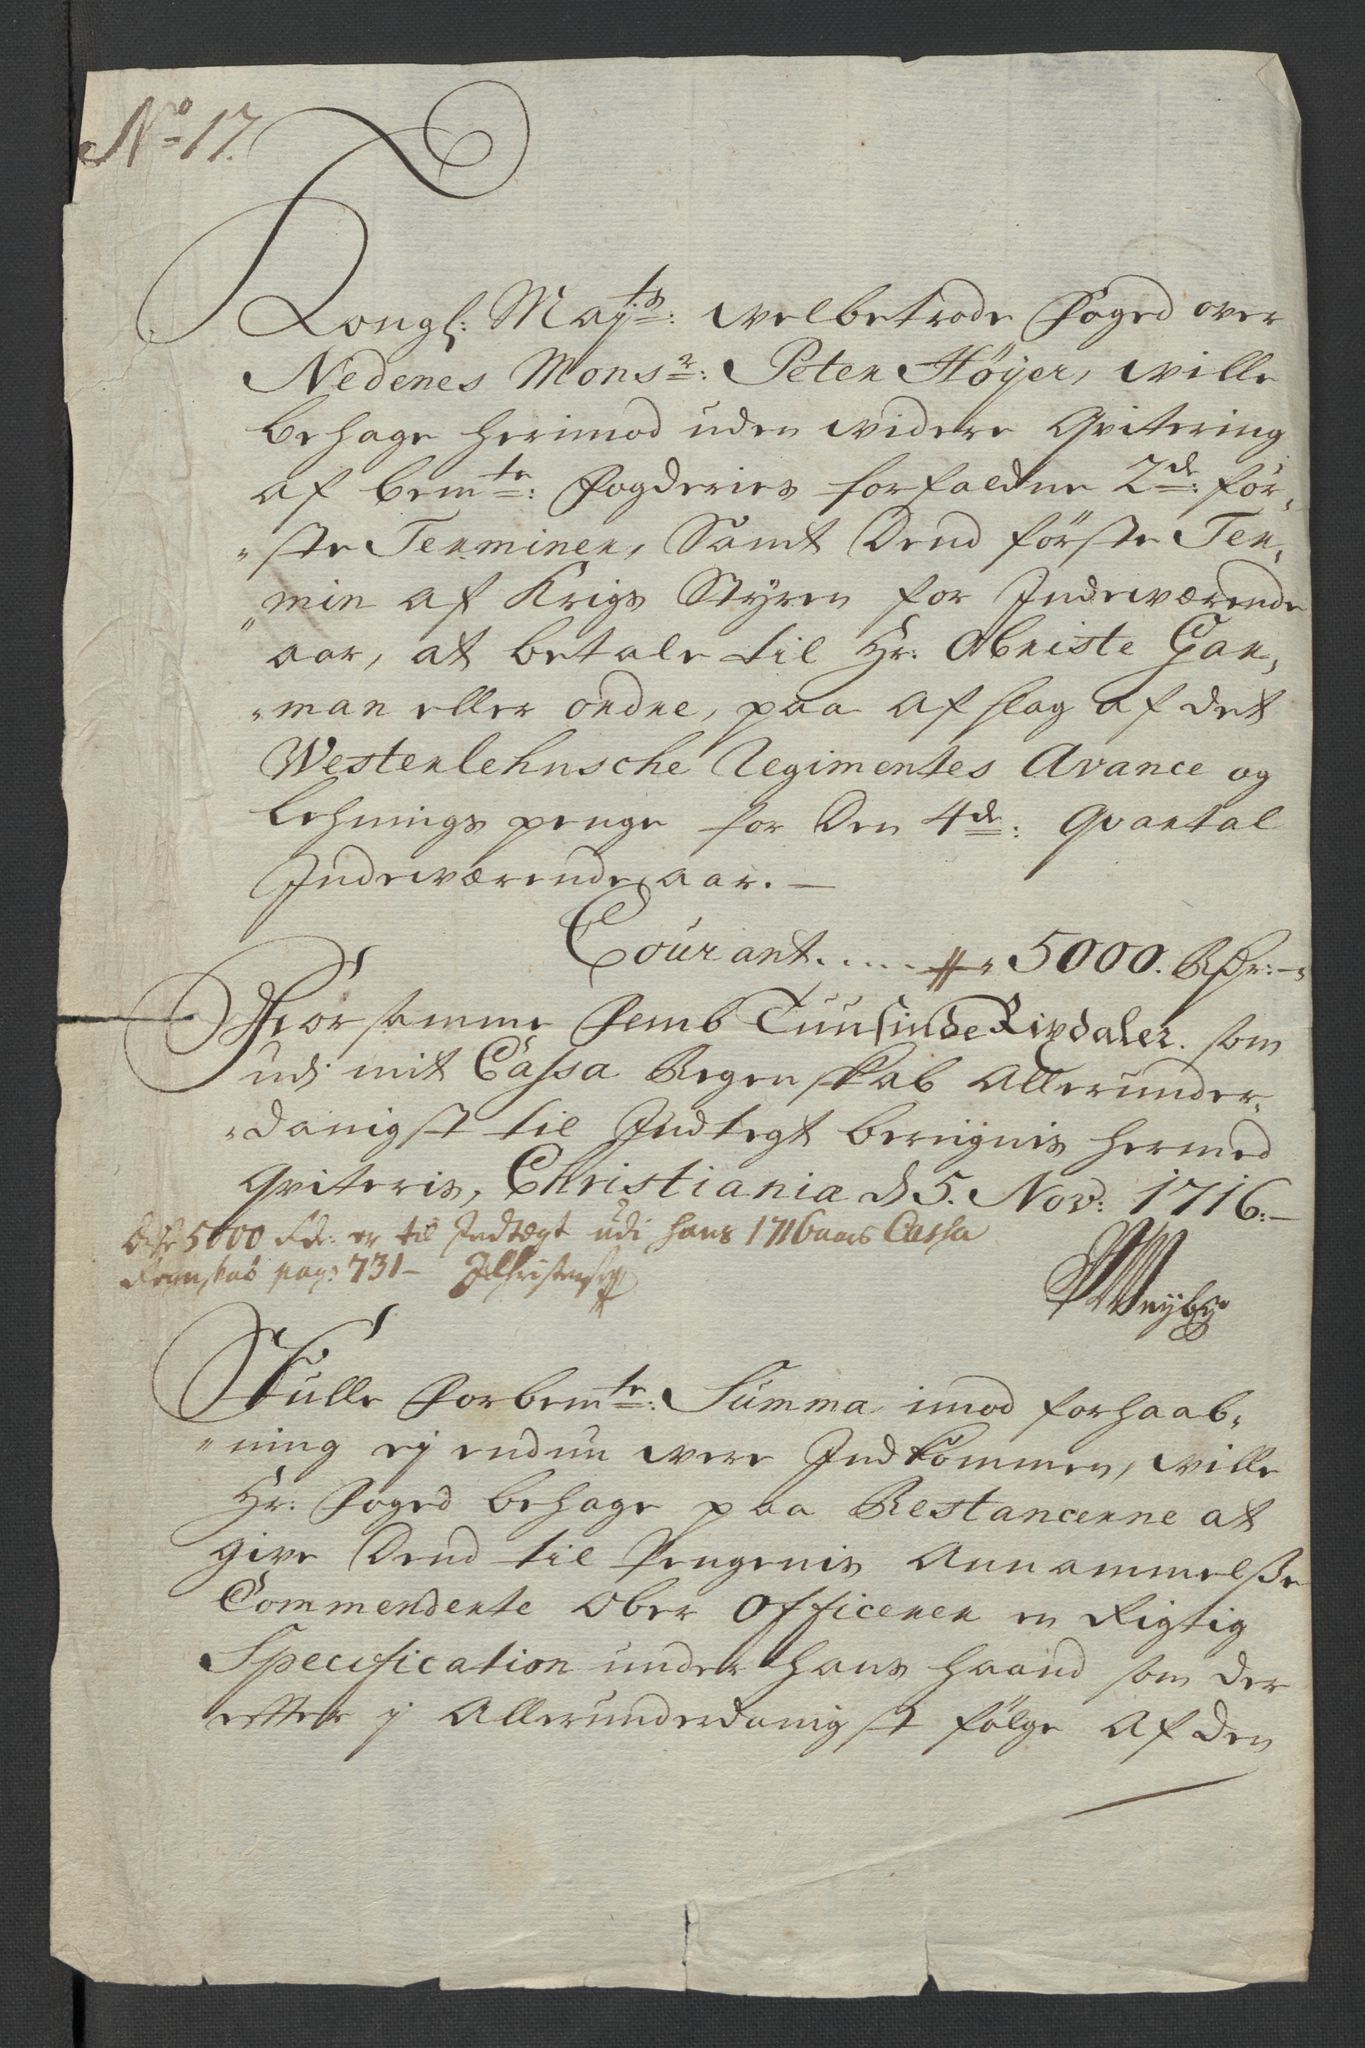 No 17.
Kongl: Mayts: welbetrode Foged over
Nedenes Monsr: Peter Höyer, wille
behage herimod uden widere Qvitering
af bemte: Fogderies forfaldne 2de: för,
"ste Terminer, Samt Dend förste Ter,
"min af Krigs Styren for Indewærende
aar, at betale til Hr: Obriste Gar,
"man eller ordre, paa afslag af det
Westerlehnsche Regimentes Avance og
Lehnings penge for Den 4de: Qvartal
Indewærende aar. —
Courant..... 5000. Rdr: —
Hvor samme Femb Tuusinde Rixdaler. som
udi mit Cassa Regenskab Allerunder,
"danigst til Indtegt bereignis hermed
Qviteris, Christiania d 5. Nov: 1716: —
Disse 5000 Rdr: er til Indtægt udi hans 1716 aars Cassa
Regnskab pag: 731 — Christensen
Skulle Forbemte: Summa imod forhaab,
"ning ej endnu were Indkommen, wille
Hr: Foged behage paa Restancerne at
give Dend til Pengenis Annammelsse
Commenderte Ober Officerer en Rigtig
Specification under hans haand som der
efter j Allerunderdanigst følge af den